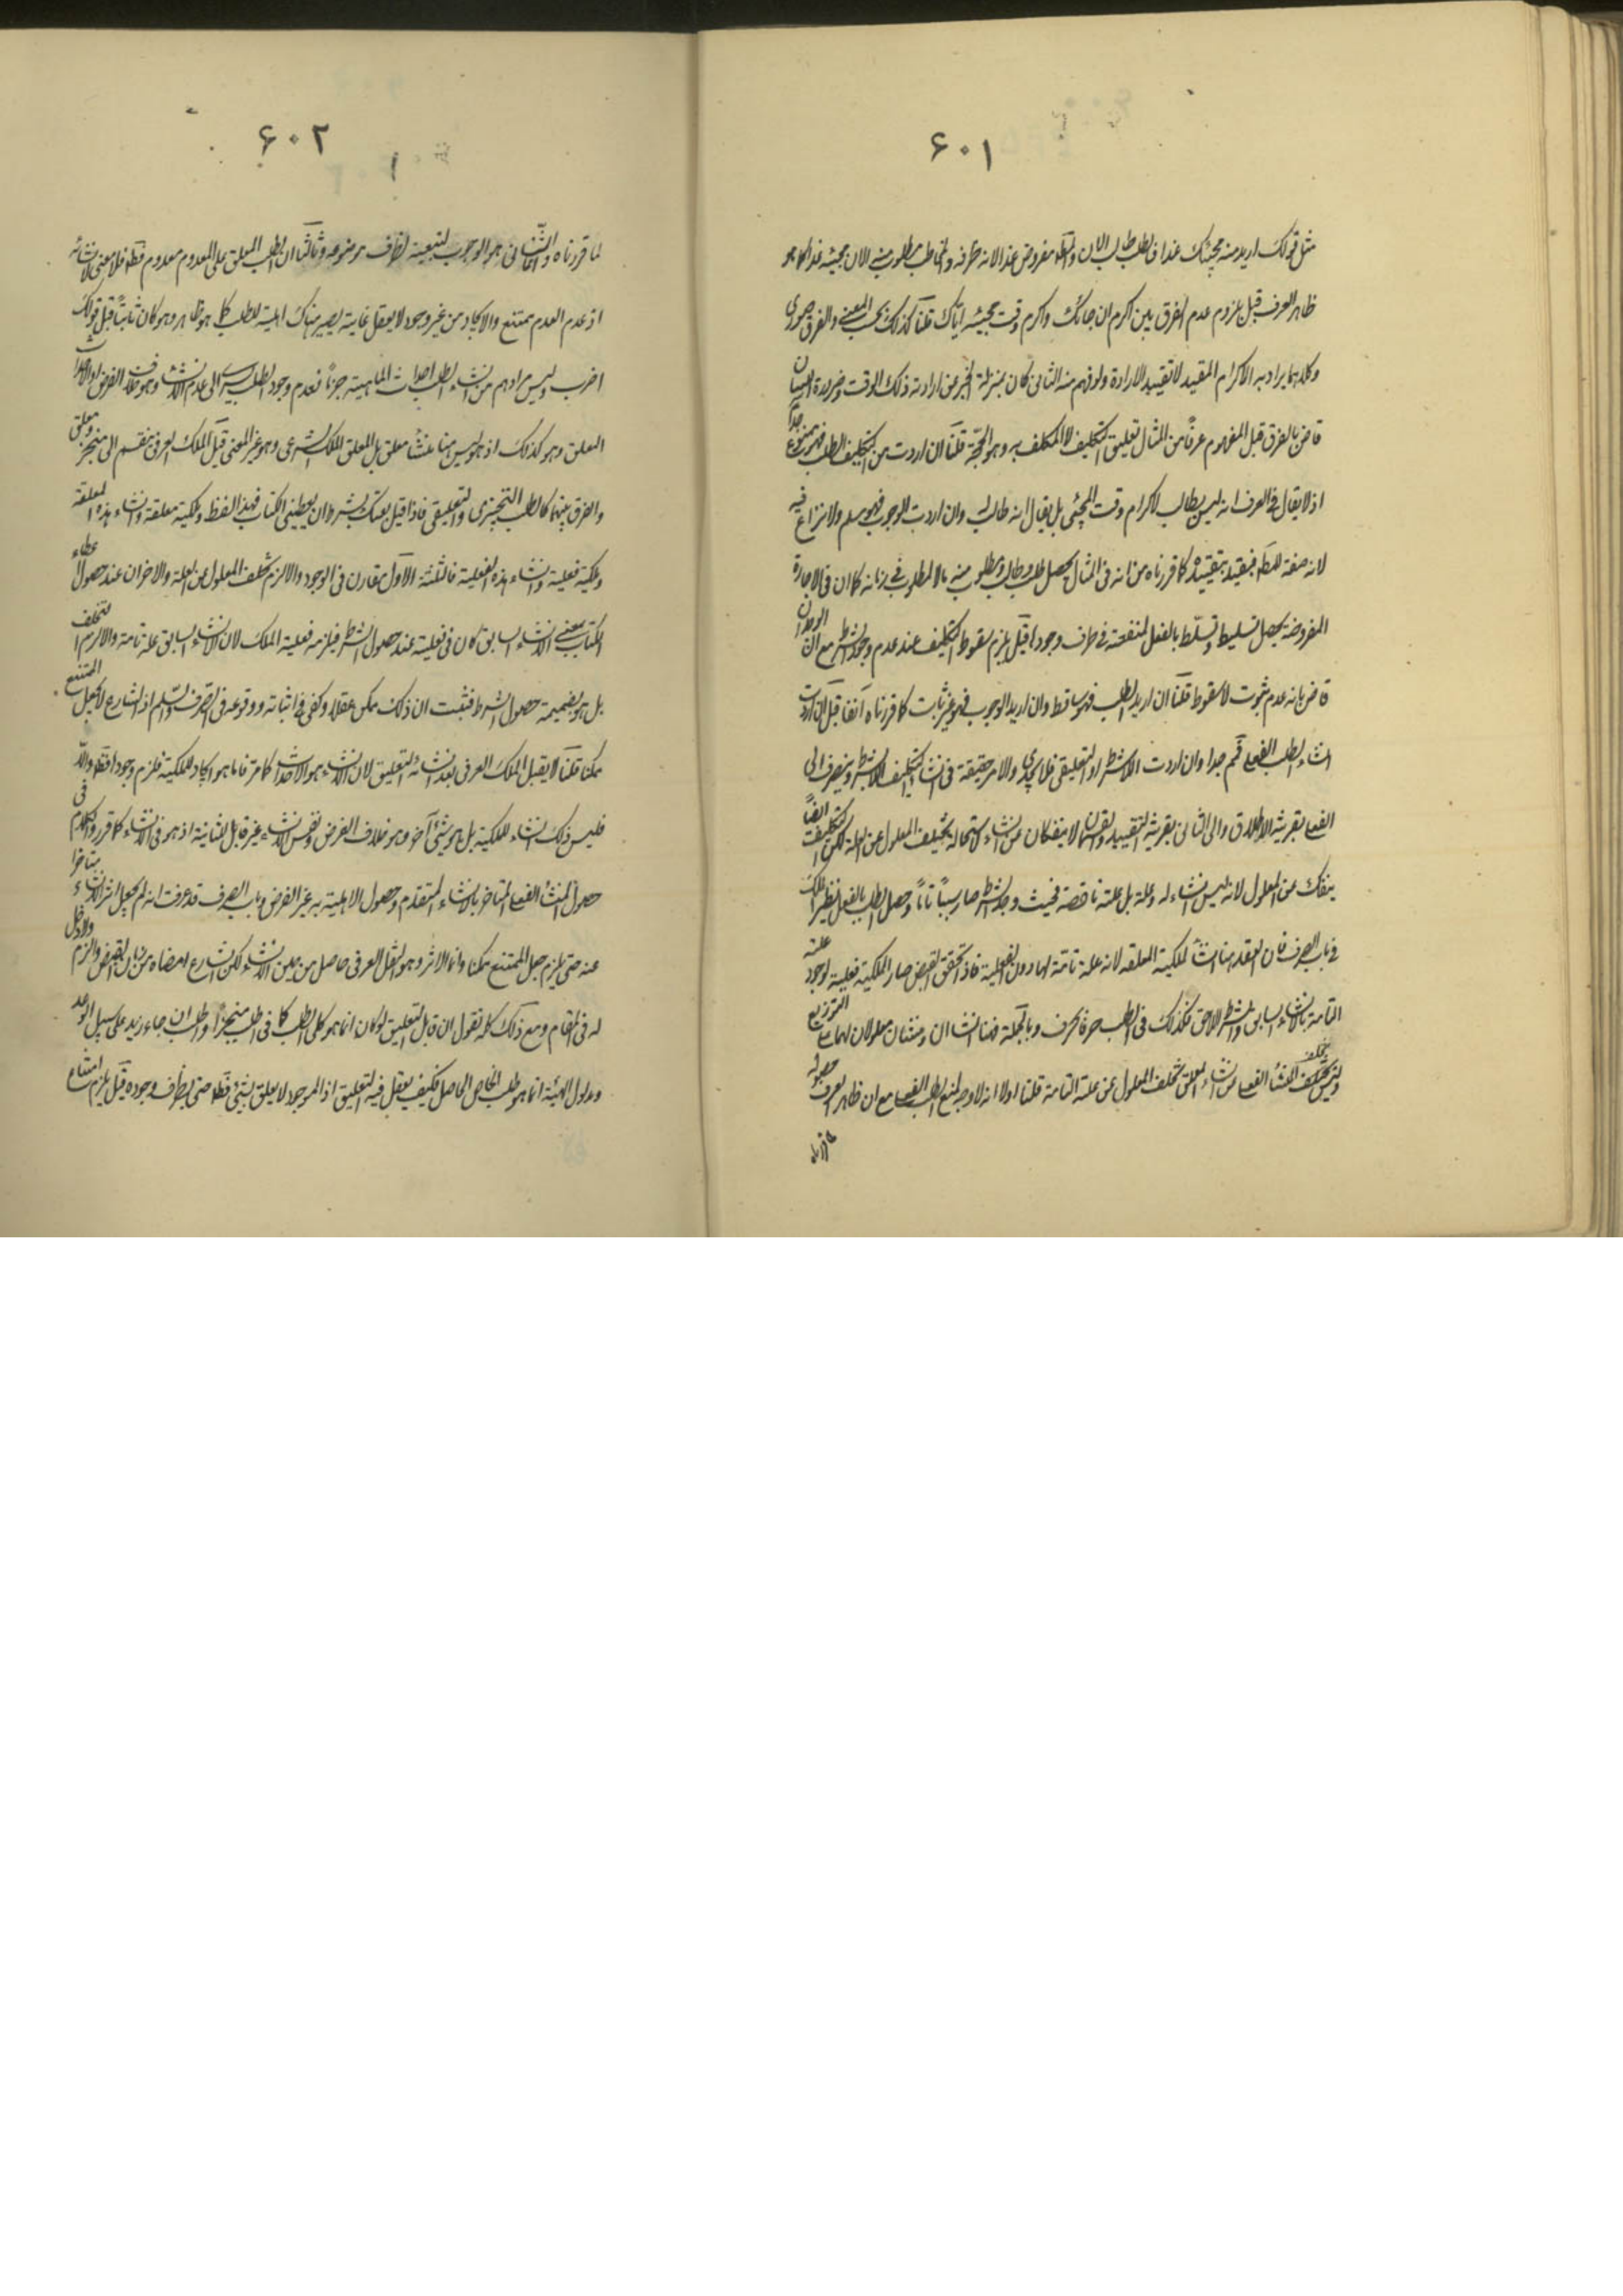 ۶۰۱
مثل قولك اريد منه مجيئك غدا فالطلب طالب الان والمط مفروض غدا لانه ظرفه والمخاطب مطلوب منه الان مجيئه غدا كما هو
ظاهر العرف قيل يلزم عدم الفرق بين اكرم ان جائك واكرم وقت مجيئه اياك قلنا كذلك بحسب المعنى والفرق صورى
وكلاهما يراد به الاكرام المقيد لا تقييد الارادة ولو فهم منه الثانى كان بمنزلة الخبر عن ارادته ذلك الوقت وضرورة البيان
قاض بالفرق قيل المفهوم عرفا من المثال تعليق التكليف لا المكلف به وهو الحجة قلنا ان اردت من التكليف الطلب فهو ممنوع جدا
اذ لا يقال فى العرف انه ليس بطالب لاكرام وقت المجئى بل يقال انه طالب وان اردت الوجوب فهو مسلم ولا نزاع فيه
لانه صفة للمط فيتقيد بتقييده كما قررناه من انه فى المثال يحصل طلب وطالب ومطلوب منه بالمطلوب فى زمانه كما ان فى الاجارة
المفروضة يحصل تسليط وتسلط بالفعل لمنفعة فى ظرف وجودها قيل يلزم سقوط التكليف عند عدم وجود الشرط مع ان الوجدان
قاض بانه عدم ثبوت لا سقوط قلنا ان اريد الطلب فهو ساقط وان اريد الوجوب فهو غير ثابت كما قررناه آنفا قيل ان اردت
انشاء الطلب الفعلى فمم جدا وان اردت الاشتراط او التعليقى فلا يجدى والامر حقيقة فى انشاء التكليف الاشترا وينصرف الى
الفعلى بقرينة الاطلاق والى الثانى بقرينة التقييد ولا ينفكان عن انشاء لاستحالة تخلف المعلول عن العلة لكن التكليف ايضا
ينفك عن المعلول لانه ليس انشاء له وعلة بل علة ناقصة فحيث وجد الشرط صار سببا تاما وحصل الطلب بالفعل نظير الملك
فى باب الصرف فان العقد هنا انشاء للملكية المعلقه لانه علة تامة لها دون الفعلية فاذا تحقق القبض صار الملكية فعلية لوجود علته
التامة بالانشاء السابق والشرط اللاحق فكذلك فى الطلب حرفا بحرف وبالجملة فهنا انشاان ومنشئان معلولان لهما على التوزيع
وليس تخلف المنشأ الفعلى عن انشاء المعلق تخلف المعلول عن علته التامة قلنا اولا انه لا وجه لمنع الطلب الفعلى مع ان ظاهر العرف حصوله
۶۰۲
لما قررناه والثانى هو الوجوب لتبعيته لظرف موضوعه وثالثا ان الطلب المعلق على المعدوم معدوم قط فلا معنى لانشائه
اذ عدم العدم ممتنع والايجاد من غير وجود لا يعقل غايته يصير هناك اهلية للطلب كما هو ظاهر وهو كان ثابتا قبل قولك
اضرب وليس مرادهم من انشاء الطلب احداث الماهية جزما فعدم وجود الطلب يسرى الى عدم الانشاء وهو خلاف الفرض
المعلق وهو كذلك اذ هو ليس هنا منشأ معلق بل المعلق الملك الشرعى وهو غير المعنى قيل الملك العرفى ينقسم الى منجز ومعلق
والفرق بينهما كالطلب التنجيزى والتعليقى فاذا قيل بعتك بشرط ان يعطينى الكتاب فهذا لفظ وملكية معلقة وانشاء لهذه المعلقة
وملكية فعلية وانشاء لهذه الفعلية فالثلثة الاول مقارن فى الوجود والا لزم تخلف المعلول عن العلة والاخران عند حصول اعطاء
الكتاب بمعنى الانشاء السابق كان فى فعليته عند حصول الشرط فيلزمه فعلية الملك لان الانشاء السابق علة تامة والا لزم التخلف
بل هو بضميمة حصول الشرط فثبت ان ذلك ممكن عقلا وكفى فى اثباته ووقوعه فى الصرف والسلم اذ الشارع لا يجعل الممتنع
ممكنا قلنا لا يقبل الملك العرفى بعد انشائه التعليق لان الانشاء هو الاحداث كما مر فاما هو ايجاد للملكية فلزم وجودها قط والا
فليس ذلك انشاء للملكية بل هو شئ آخر وهو خلاف الفرض ونفس الانشاء غير قابل لثانية اذ هو فى الانشاء كما قرر والكلام فى
حصول المنشأ الفعلى المتاخر بالانشاء المتقدم وحصول الاهلية به غير الفرض وباب الصرف قد عرفت انه لم يجعل اثر الانشاء متاخرا
عنه حتى يلزم جعل الممتنع ممكنا وانما الاثر وهو النقل العرفى حاصل من حين الانشاء لكن الشارع امضاه من زمان القبض ولا دخل
له فى المقام ومع ذلك كله نقول ان قابل التعليق لو كان انما هو كلى الطلب كما فى اطلب منجزا واطلب ان جاء زيد على سبيل الوعد
ومدلول الهيئة انما هو طلب الخاص الحاصل فكيف يعقل فيه التعليق اذ الموجود لا يعلق بشئ قط حتى بظرف وجوده قيل يلزم امتناع